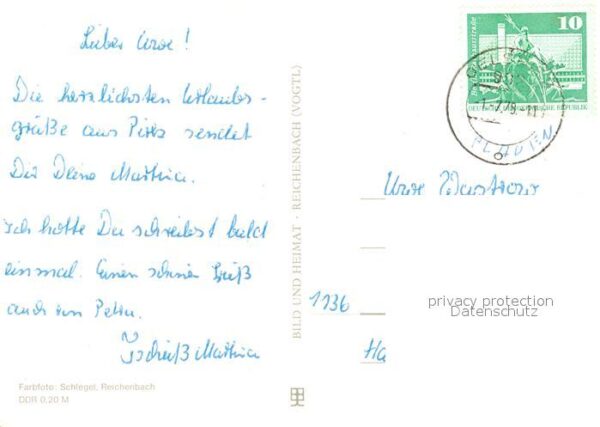 Lieber Uwe!
Die herzlichsten Urlaubs-
grüße aus Pirk sendet
Dir Deine Martina.
Ich hoffe Du schreibst bald
einmal. Einen schönen Gruß
auch von Petra.
Tschüß Martina
Farbfoto: Schlegel, Reichenbach
DDR 0,20 M
BILD UND HEIMAT · REICHENBACH (VOGTL)
10
DEUTSCHE DEMOKRATISCHE REPUBLIK
OELSNITZ
PLAUEN
Uwe
1136
privacy protection
Datenschutz
Ha